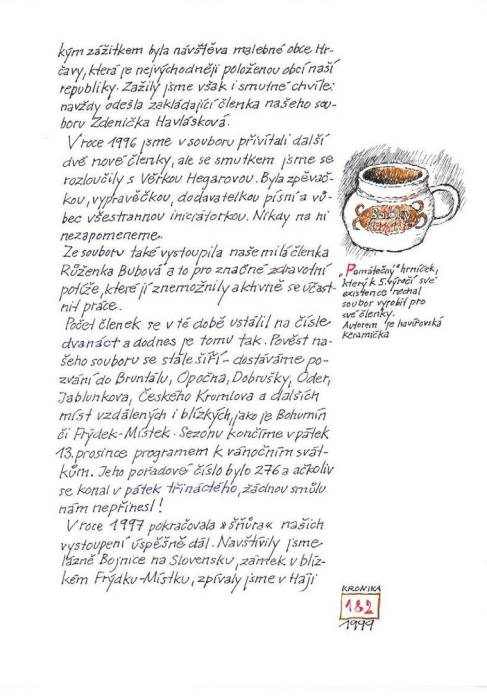 kým zážitkem byla návštěva malebné obce Hr-
čavy, která je nejvýchodněji položenou obcí naší
republiky. Zažily jsme však i smutné chvíle:
navždy odešla zakládající členka našeho sou-
boru Zdenička Havlásková.
V roce 1996 jsme v souboru přivítali další
dvě nové členky, ale se smutkem jsme se
rozloučily s Věrkou Hegarovou. Byla zpěvač-
kou, vypravěčkou, dodavatelkou písní a vů-
bec všestrannou iniciátorkou. Nikdy na ni
nezapomeneme.
Ze souboru také vystoupila naše milá členka
Růženka Bubová a to pro značné zdravotní
potíže, které jí znemožnily aktivně se účast-
nit práce.
Počet členek se v té době ustálil na čísle
dvanáct a dodnes je tomu tak. Pověst na-
šeho souboru se stále šíří - dostáváme po-
zvání do Bruntálu, Opočna, Dobrušky, Oder,
Jablunkova, Českého Krumlova a dalších
míst vzdálených i blízkých, jako je Bohumín
či Frýdek-Místek. Sezonu končíme v pátek
13. prosince programem k vánočním svát-
kům. Jeho pořadové číslo bylo 276 a ačkoliv
se konal v pátek třináctého, žádnou smůlu
nám nepřinesl!
V roce 1997 pokračovala »šňůra« našich
vystoupení úspěšně dál. Navštívily jsme
lázně Bojnice na Slovensku, zámek v blíz-
kém Frýdku-Místku, zpívaly jsme v Háji
"Památečný" hrníček,
který k 5. výročí své
existence nechal
soubor vyrobit pro
své členky.
Autorem je havířovská
keramička
KRONIKA
182
1999